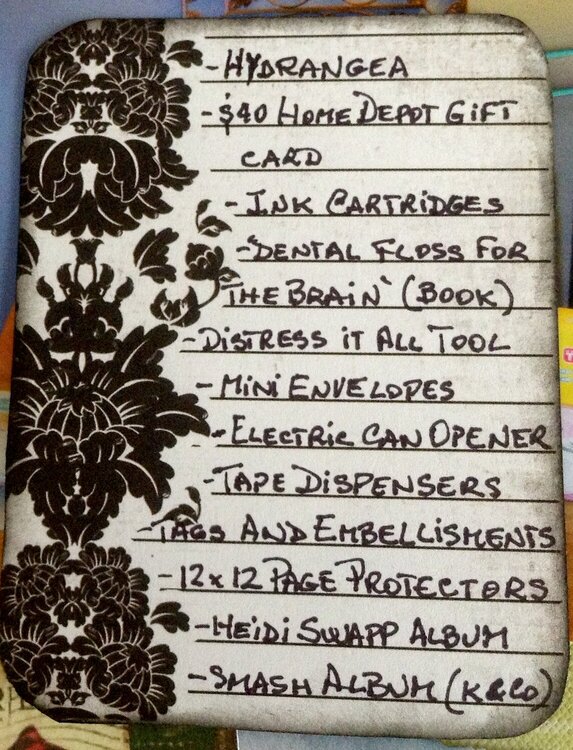 - HYDRANGEA
- $40 HOME DEPOT GIFT
CARD
- INK CARTRIDGES
- "DENTAL FLOSS FOR
THE BRAIN" (BOOK)
- DISTRESS IT ALL TOOL
- MINI ENVELOPES
- ELECTRIC CAN OPENER
- TAPE DISPENSERS
- TAGS AND EMBELLISMENTS
- 12x12 PAGE PROTECTORS
- HEIDI SWAPP ALBUM
- SMASH ALBUM (K&CO)